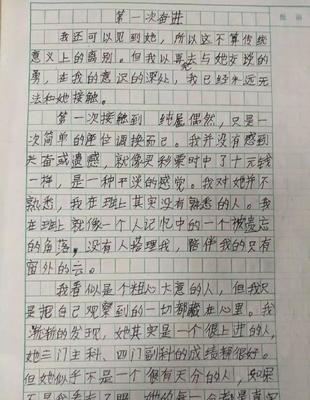 第一次奋进
我还可以见到她，所以这不算传统
意义上的离别。但我以再去与她交谈的
勇，在我的意识的深处，我已经永远无
法和她接触。
第一次接触到 纯属偶然，只是一
次简单的座位调换而已。我并没有感到
失落或遗感，就像买彩票时中了十元钱
一样，是一种平淡的感觉。我对她并不
熟悉，我在班上其实没有熟悉的人。我
在班上就像一个人记忆中的一个被遗忘
的角落，没有人搭理我，陪伴我的只有
窗外的云。
我看似是个粗心大意的人，但我只
是把自己观察到的一切都藏在心里。我
渐渐的发现，她其实是一个很上进的人，
她三门主科、四门副科的成绩都很好。
但她似乎不是一个很有天分的人，如果